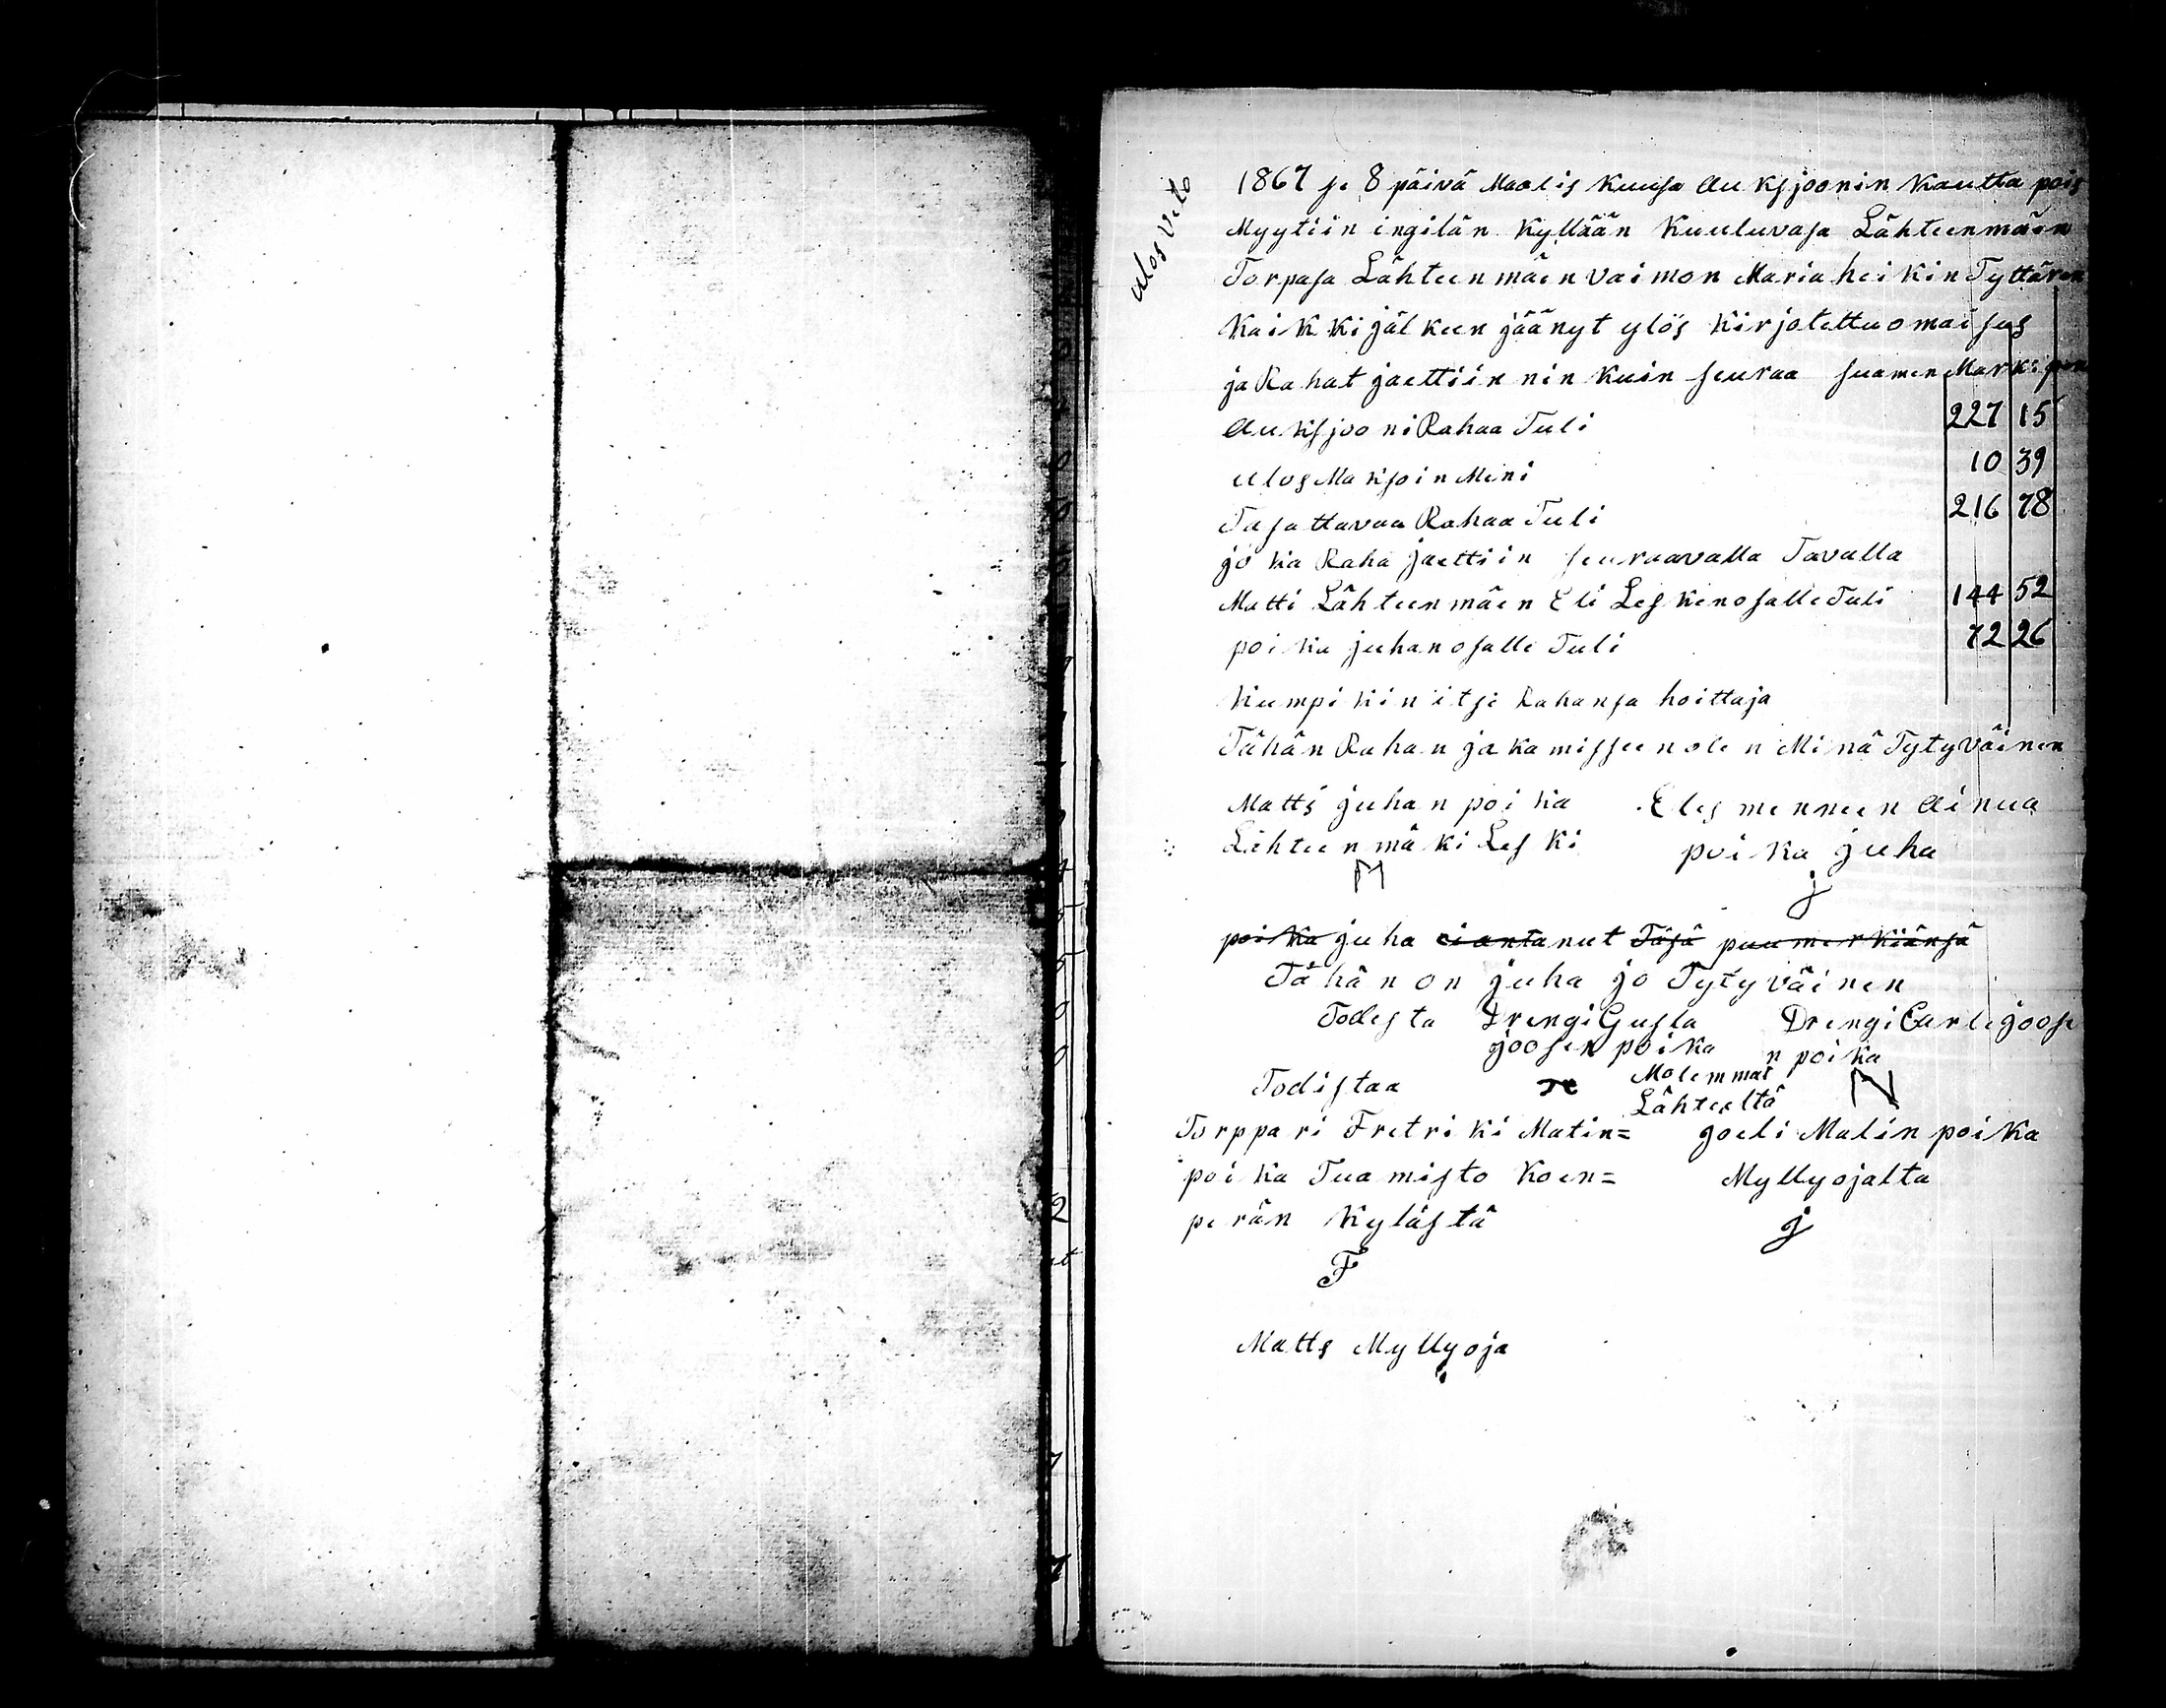 ulos Veto
1867 se 8 päivä Maalis kuusa au ksjoonin kautta pois
Myytiin ingilän kyllään kuuluvasa Lähteenmäen
Torpasa Lähteenmäen vaimon Maria heikin Tyttären
kaikki jälkeen jäänyt ylös kirjotettu omaisus
ja Rahat jaettiin nin kuin seuraa suomen Mark: pen
auksjooni Rahaa Tuli 227 15
ulos Maksoin Meni 10 39
Tasattavaa Rahaa Tuli 216 78
joka Raha jaettiin seuraavalla Tavalla
Matti Lähteenmäen Eli Lesken osalle Tuli 144 52
poika juhan osalle Tuli 72 26
kumpikin itse Rahansa hoittaja
Tähän Rahan jakamisseen olen Minä Tytyväinen
Matts juhan poika Eles menneen ainua
Lähteenmäki Leski poika juha
M j
poika juha ei antanut Täsä puumerkiänsä
Tähän on juha jo Tytyväinen
Todesta Drengi Gusta Drengi Carle joose
joosen poika n poika
Todistaa Molemmat N
Lähteeltä
Torppari Fretriki Matin= joeli Malin poika
poika Tuamisto Koen= Myllyojalta
perän kylästä j
F
Matts Myllyoja